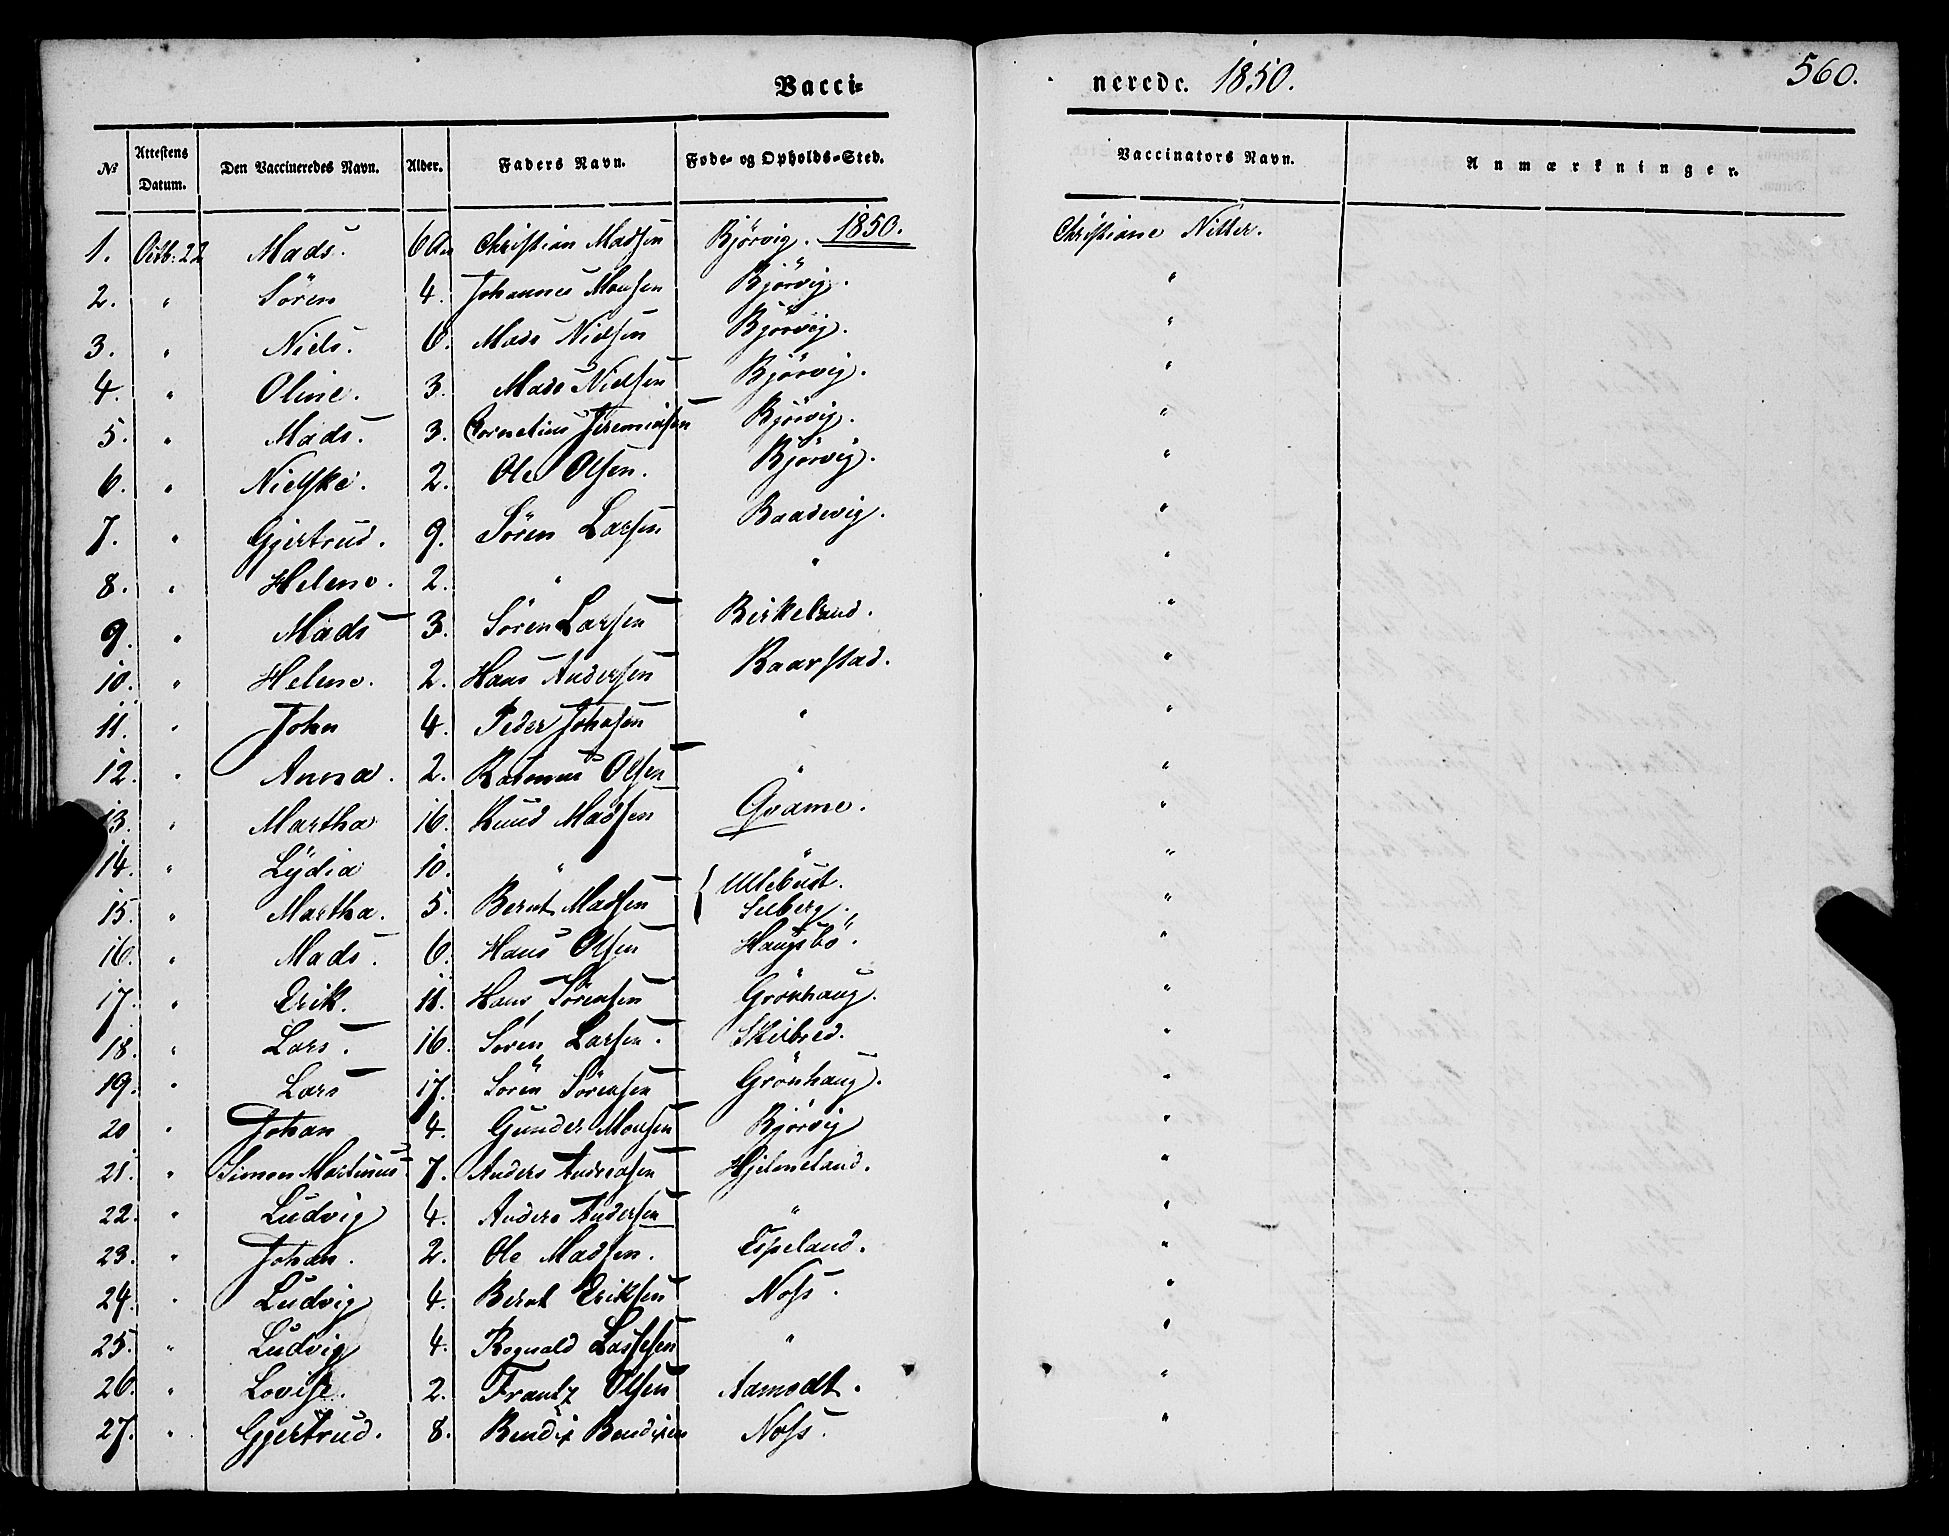 Vacci= nerede. 1850. 560.
№ Attestens Datum. Den Vaccineredes Navn. Alder. Faders Navn. Føde- og Opholds-Sted. Vaccinators Navn. Anmærkninger.
1. Octb: 22 Mads. 6 Christian Madsen Bjørvig. 1850. Christiane Nitter.
2. " Søren 4. Johannes Monsen Bjørvig. "
3. " Niels. 6. Mads Nielsen Bjørvig. "
4. " Oline. 3. Mads Nielsen Bjørvig. "
5. " Mads. 3. Cornelius Jeremiasen Bjørvig. "
6. " Nielske. 2. Ole Olsen. Bjørvig. "
7. " Gjertrud. 9. Søren Larsen Baadevig. "
8. " Helene. 2. " " "
9. " Mads 3. Søren Larsen Birkeland. "
10. " Helene. 2. Hans Andersen Kaarstad. "
11. " John 4. Peder Johnsen " "
12. " Anna. 2. Rasmus Olsen " "
13. " Martha 16. Knud Madsen Qvame. "
14. " Lydia 10. " " "
15. " Martha. 5. Bernt Madsen { Ullebust. Seeberg. "
16. " Mads. 6. Hans Olsen Haugsbø. "
17. " Erik. 11. Hans Sørensen Grønhaug. "
18. " Lars. 16. Søren Larsen. Skilbred. "
19. " Lars 17. Søren Sørensen Grønhaug. "
20 " Johan 4. Gunder Monsen Bjørvig "
21. " Simon Martinus 7. Anders Andreasen Hjelmeland. "
22. " Ludvig 4. Anders Andersen " "
23. " Johan. 2. Ole Madsen. Espeland. "
24. " Ludvig 4. Bernt Eriksen Noss. "
25. " Ludvig 4. Rognald Lassesen " "
26. " Lovise. 2. Frantz Olsen Aamodt. "
27. " Gjertrud. 8. Bendix Bendixen Noss. "